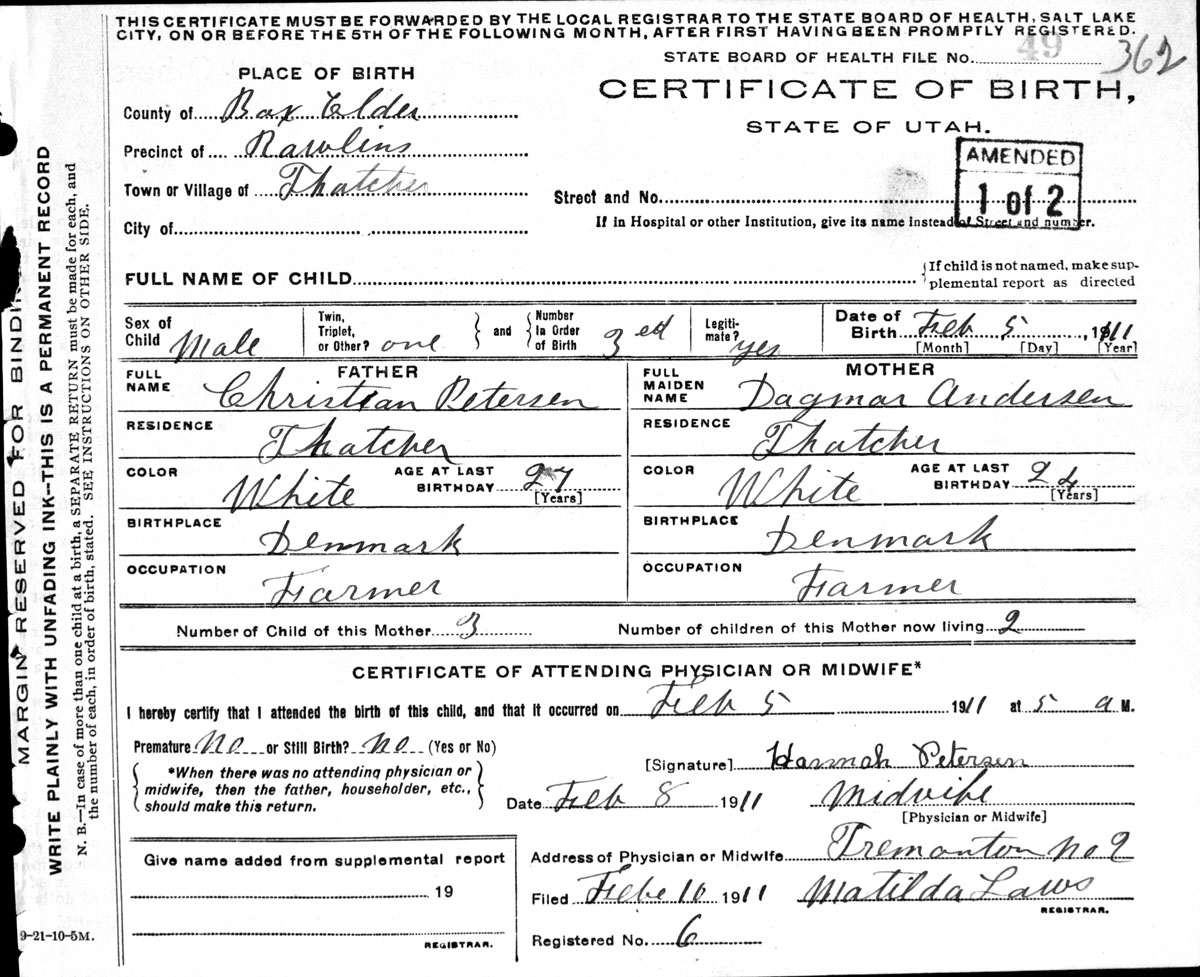 THIS CERTIFICATE MUST BE FORWARDED BY THE LOCAL REGISTRAR TO THE STATE BOARD OF HEALTH, SALT LAKE
CITY, ON OR BEFORE THE 5TH OF THE FOLLOWING MONTH, AFTER FIRST HAVING BEEN PROMPTLY REGISTERED.
STATE BOARD OF HEALTH FILE No. 49 362
PLACE OF BIRTH
CERTIFICATE OF BIRTH,
STATE OF UTAH.
County of Box Elder
Precinct of Rawlins
Town or Village of Thatcher
City of
AMENDED
1 of 2
Street and No.
If in Hospital or other Institution, give its name instead of Street and number.
FULL NAME OF CHILD
If child is not named, make sup-
plemental report as directed
Sex of Child Male
Twin, Triplet, or Other? one
and
Number In Order of Birth 3ed
Legiti-mate? yes
Date of Birth Feb 5, 1911
[Month] [Day] [Year]
FATHER
FULL NAME Christian Petersen
RESIDENCE Thatcher
COLOR White
AGE AT LAST BIRTHDAY 27
[Years]
BIRTHPLACE Denmark
OCCUPATION Farmer
MOTHER
FULL MAIDEN NAME Dagmar Andersen
RESIDENCE Thatcher
COLOR White
AGE AT LAST BIRTHDAY 24
[Years]
BIRTHPLACE Denmark
OCCUPATION Farmer
Number of Child of this Mother 3
Number of children of this Mother now living 2
CERTIFICATE OF ATTENDING PHYSICIAN OR MIDWIFE*
I hereby certify that I attended the birth of this child, and that it occurred on Feb 5 1911 at 5 a M.
Premature No or Still Birth? no (Yes or No)
*When there was no attending physician or
midwife, then the father, householder, etc.,
should make this return.
[Signature] Hannah Petersen
Date Feb 8 1911 Midvife
[Physician or Midwife]
Give name added from supplemental report
19
REGISTRAR.
Address of Physician or Midwife Tremonton no 2
Filed Febe 10 1911 Matilda Laws
REGISTRAR.
Registered No. 6
9-21-10-5M.
MARGIN RESERVED FOR BINDIN
WRITE PLAINLY WITH UNFADING INK—THIS IS A PERMANENT RECORD
N. B.—In case of more than one child at a birth, a SEPARATE RETURN must be made for each, and
the number of each, in order of birth, stated. SEE INSTRUCTIONS ON OTHER SIDE.